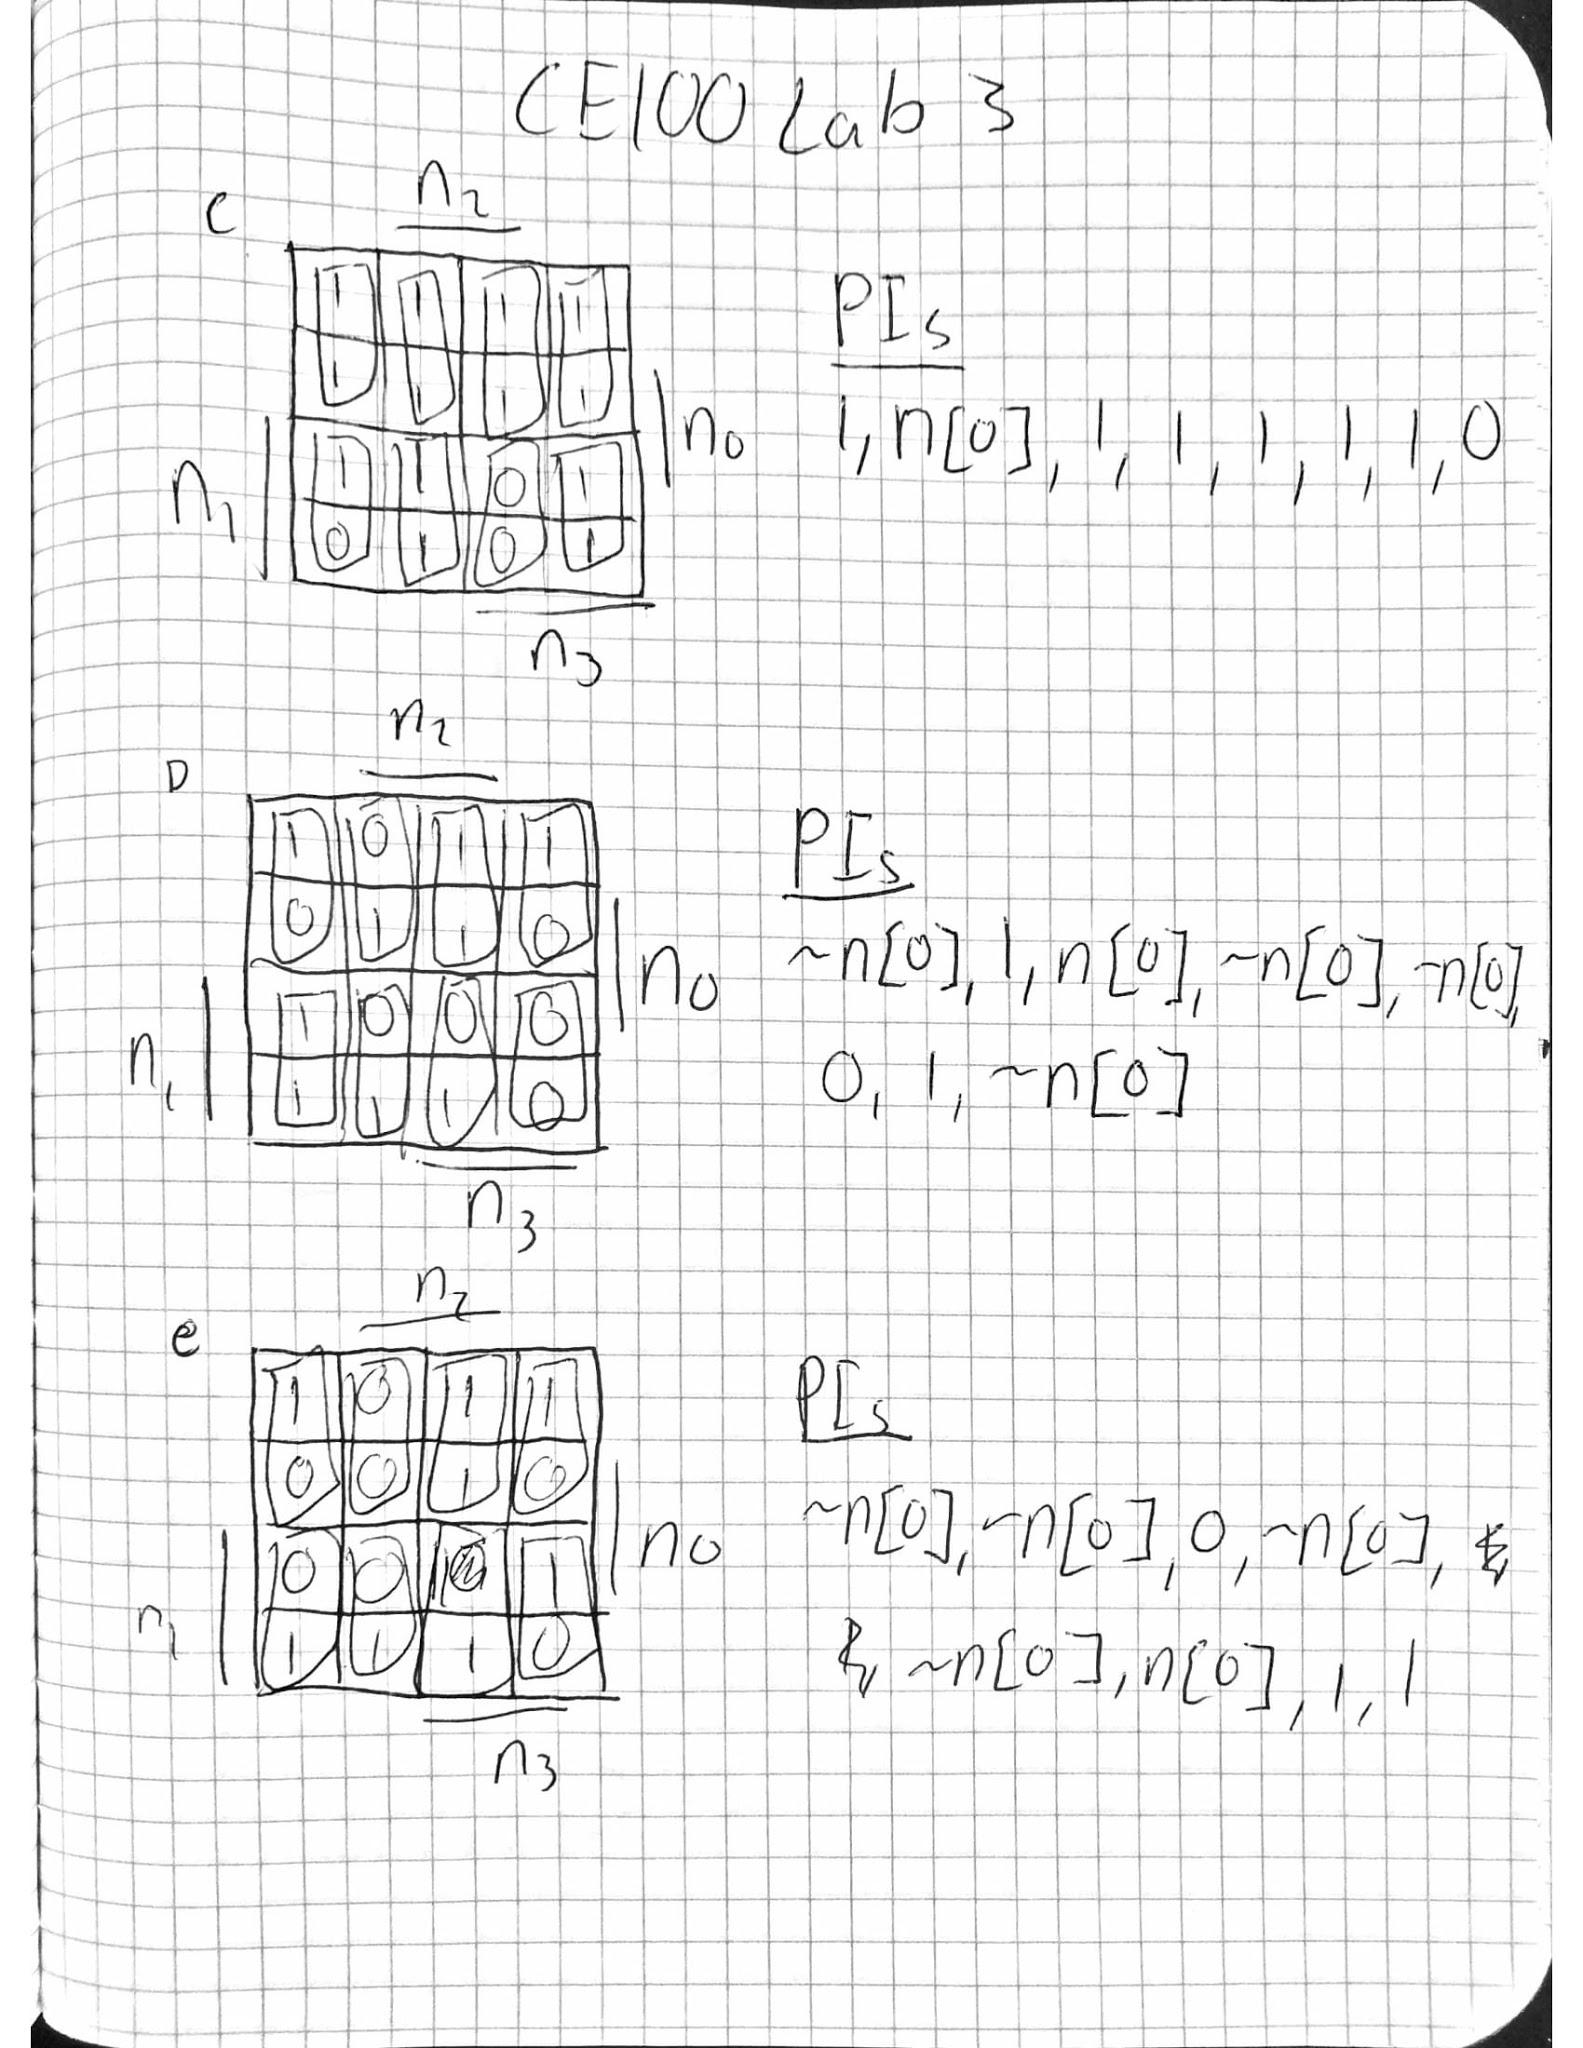 CE100 Lab 3
C
n2
1 1 1 1
1 1 1 1
1 1 0 1
0 1 0 1
n1
n0
n3
PIs
1, n[0], 1, 1, 1, 1, 1, 0
D
n2
1 0 1 1
0 1 1 0
1 0 0 0
1 1 1 0
n1
n0
n3
PIs
~n[0], 1, n[0], ~n[0], ~n[0],
0, 1, ~n[0]
e
n2
1 0 1 1
0 0 1 0
0 0 1
1 1 1 0
n1
n0
n3
PIs
~n[0], ~n[0], 0, ~n[0],
~n[0], n[0], 1, 1